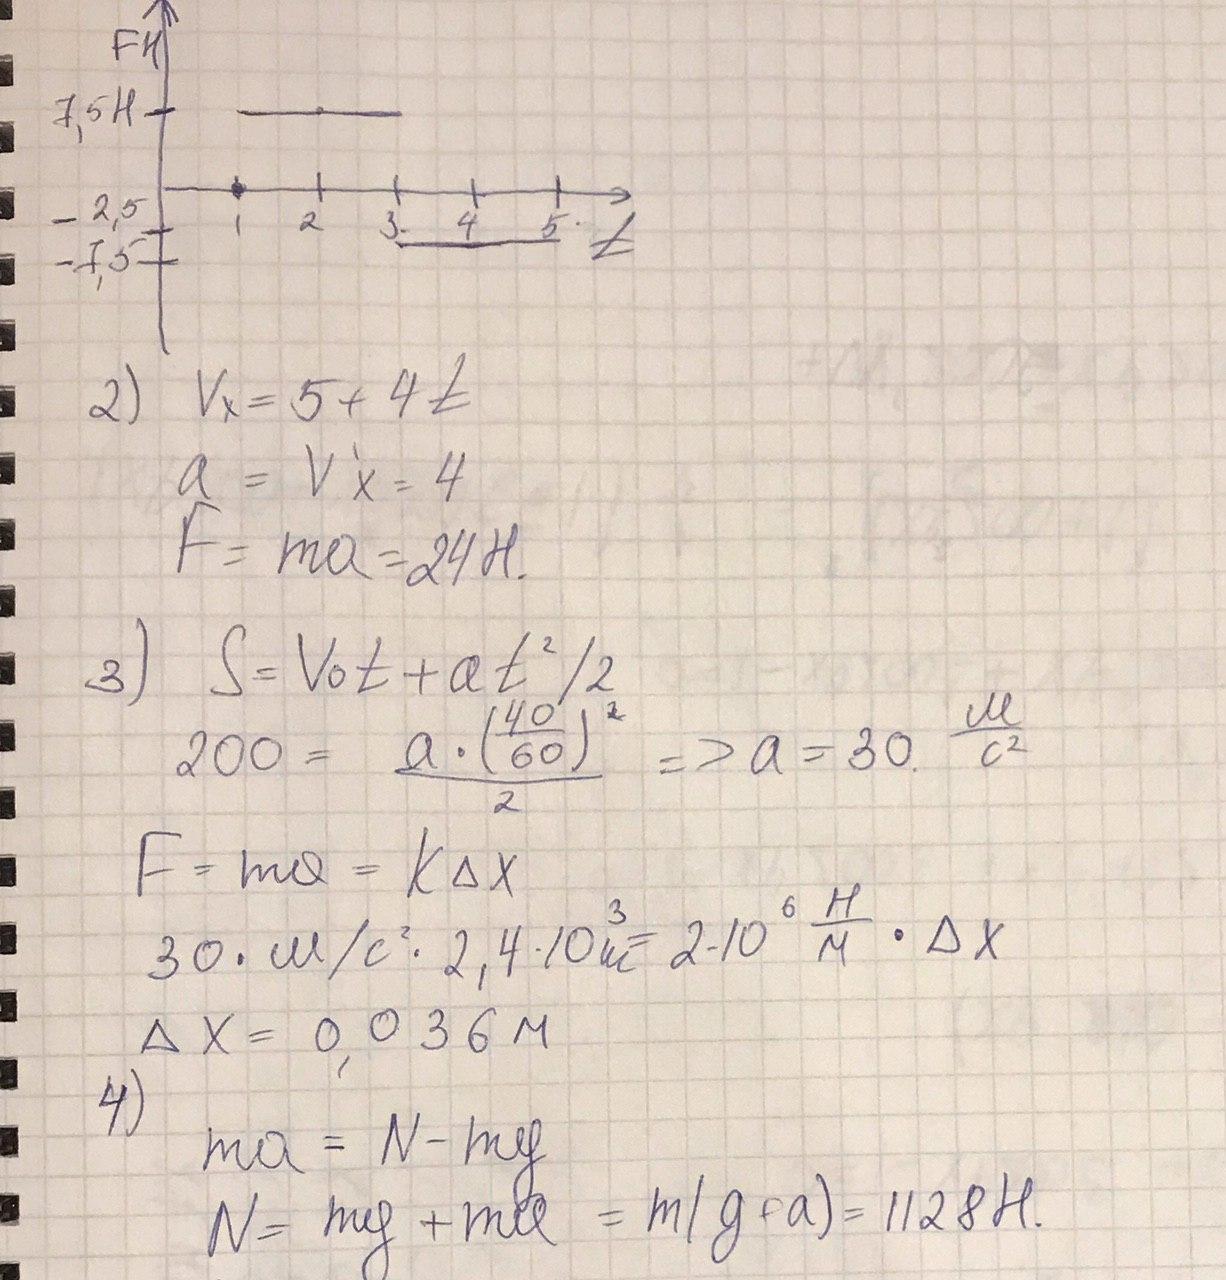 F H
7,5 H
- 2,5
- 7,5
1 2 3 4 5 t
2) Vx = 5 + 4 t
a = V'x = 4
F = ma = 24 H.
3) S = V₀t + a t² / 2
200 = a · (40/60)² / 2 => a = 30 м/с²
F = ma = K Δ X
30 · м/с² · 2,4 · 10³ = 2 · 10⁶ H/м · Δ X
Δ X = 0,036 м
4)
ma = N - mg
N = mg + ma = m(g + a) = 1128 H.